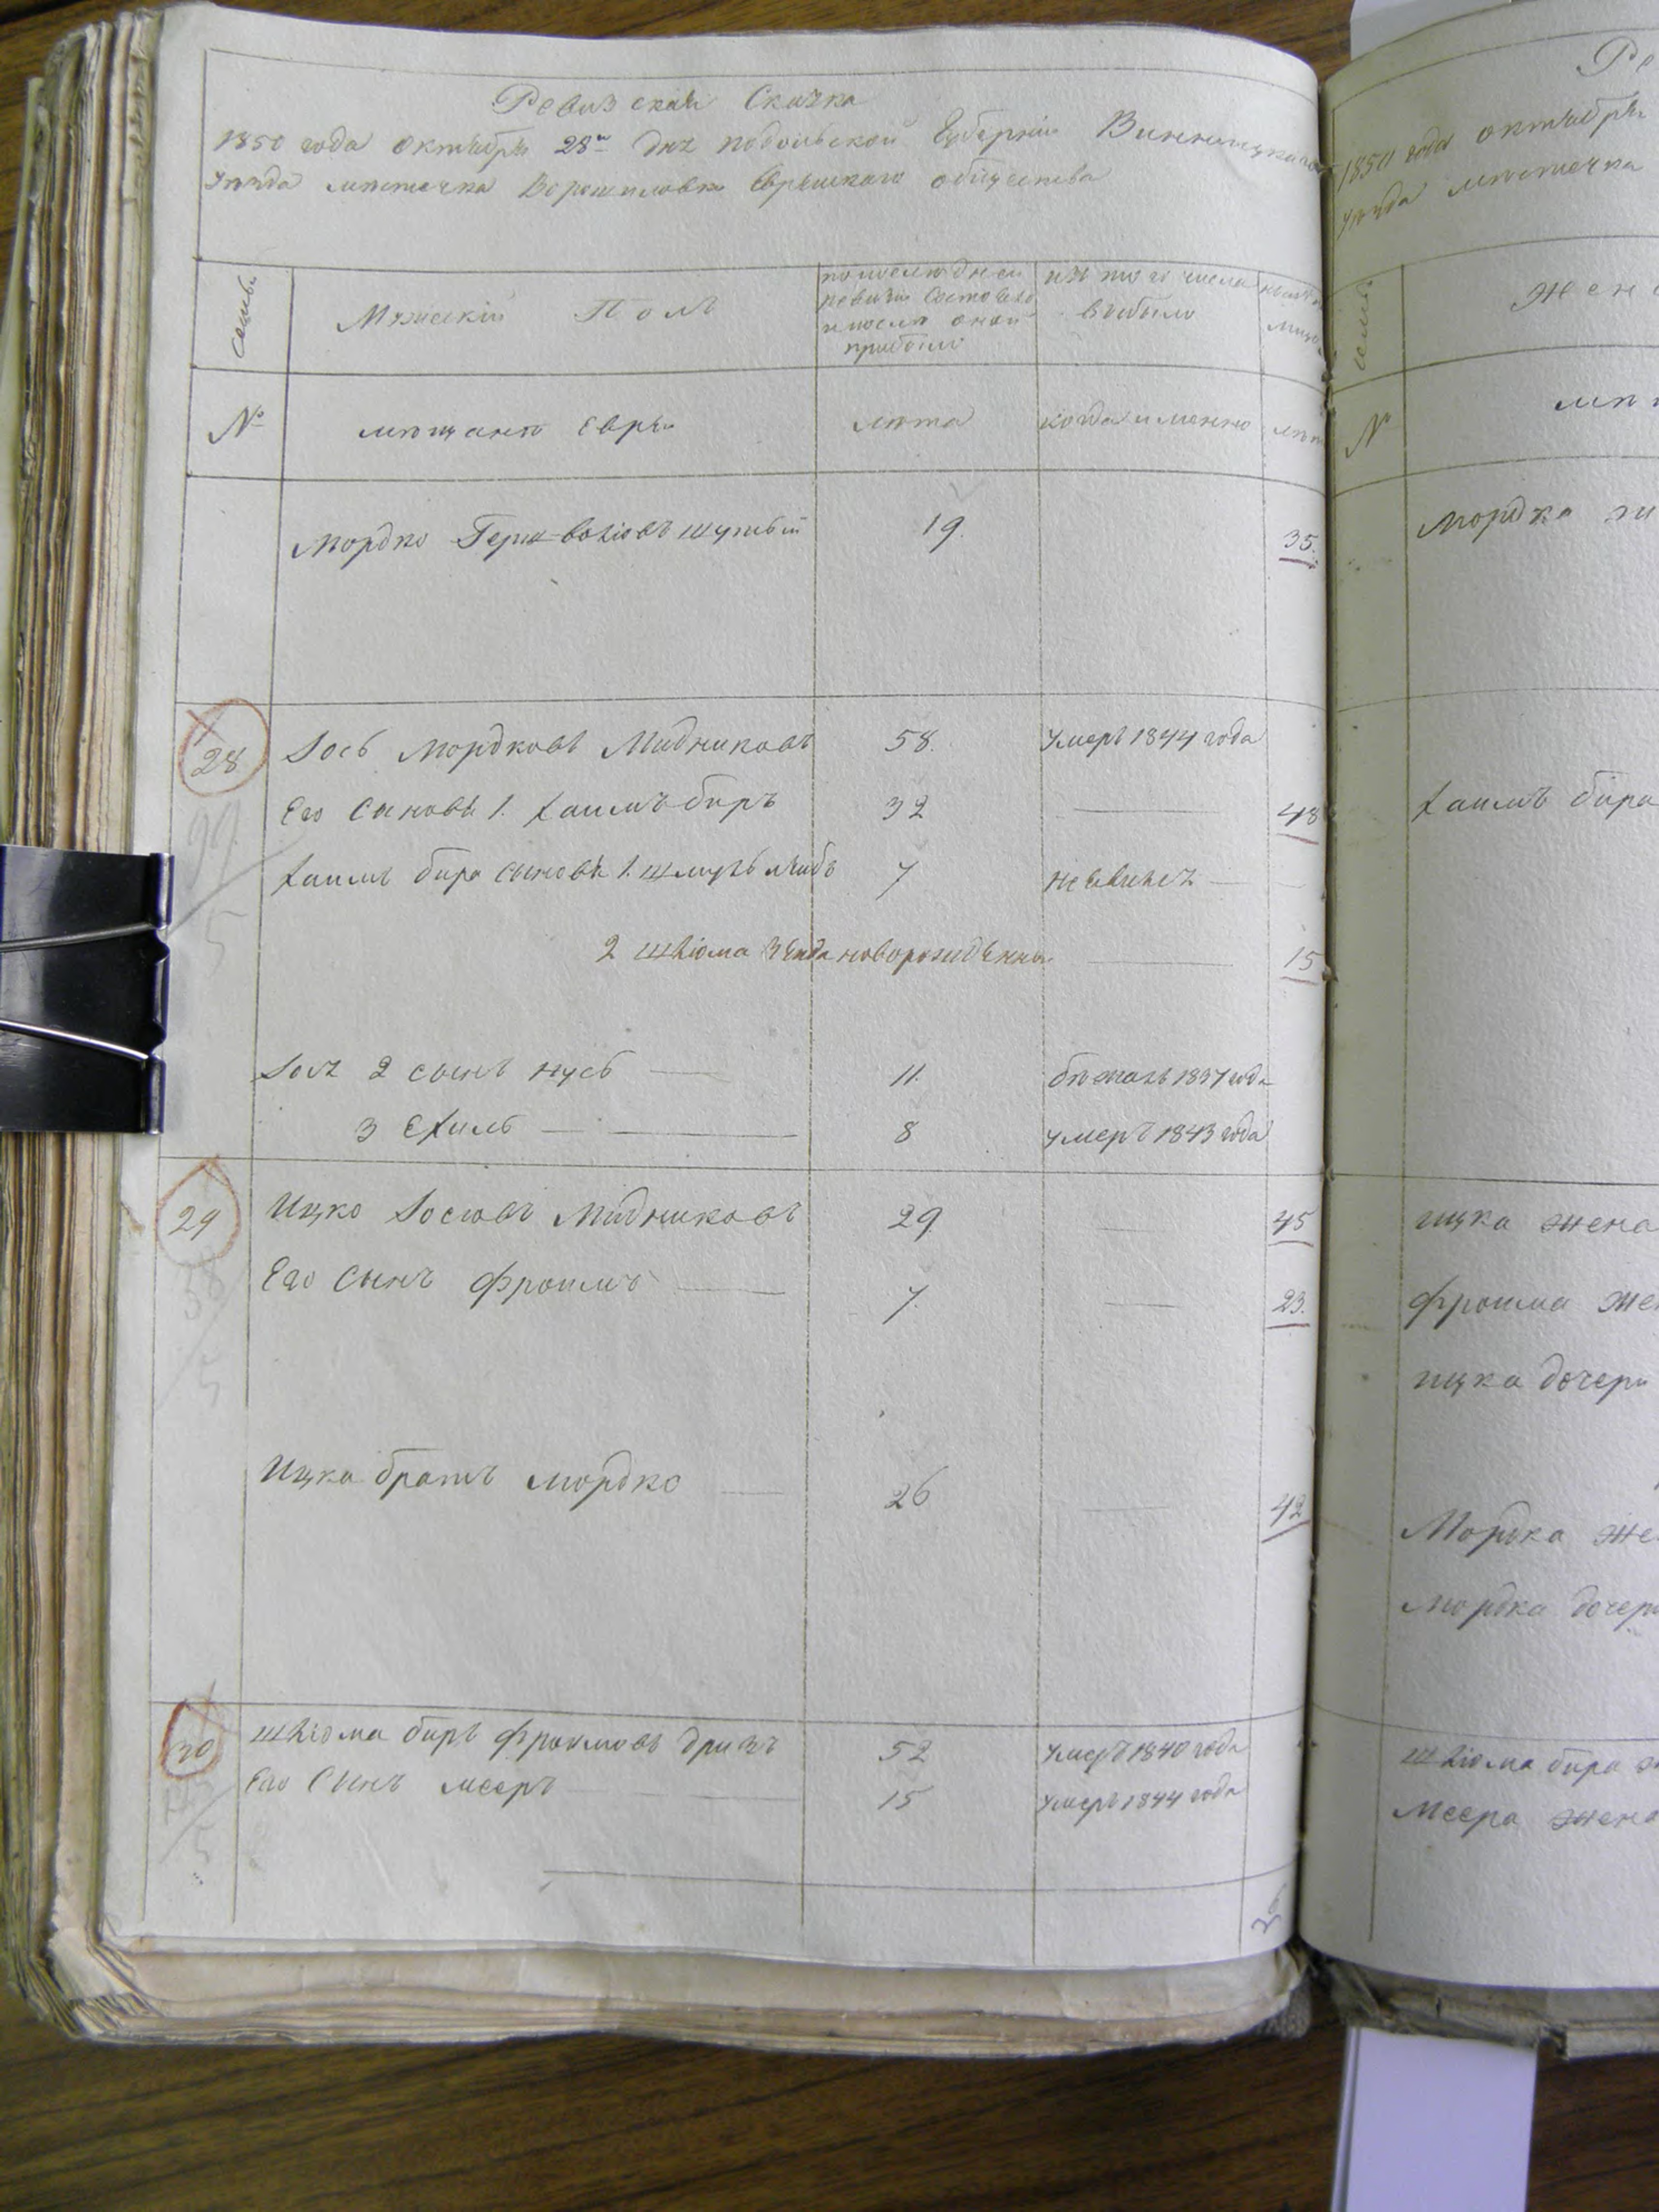 Ревизская Сказка
1850 года октября 28го дня подольской Губернии Винницкаго
уѣзда мѣстечка Ворошиловки Еврейскаго общества
Семьи
Мужескій Полъ
по последней
ревизіи состояло
и после оной
прибыло
изъ того числа
выбыло
№
мещане Евреи
лета
когда именно
Мордко Герш Вольковъ шутый 19. 35.
28 Іось Мордковъ Мидниковъ 58. умеръ 1844 года
Его Сыновя 1. Хаимъ биръ 32 — 48
Хаимъ бира Сыновя 1. Шмуль лейбъ 7 неявился —
2 Шлiома Зейда новорожденный — 15
Іося 2 сынъ нусь — 11. бежалъ 1837 года
3 Ехиль — 8 умеръ 1843 года
29 Ицко Іосіовъ Мидниковъ 29. — 45
Его Сынъ Фроимъ — 7. — 23.
Ицка братъ Мордко — 26 — 42
30 Шлiома биръ Фроимовъ дризъ 52 умеръ 1840 года
Его Сынъ мееръ — 15 умеръ 1844 года
Ре
1850 года октября
уѣзда местечка
семьи
Жен
№
ме
Мордка же
Хаимъ бира
ицка жена
фроима же
ицка дочери
Мордка же
мордка дочери
Шлiома бира
Меера жена